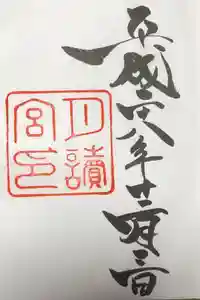 平成二十八年十二月三日
月讀
宮印